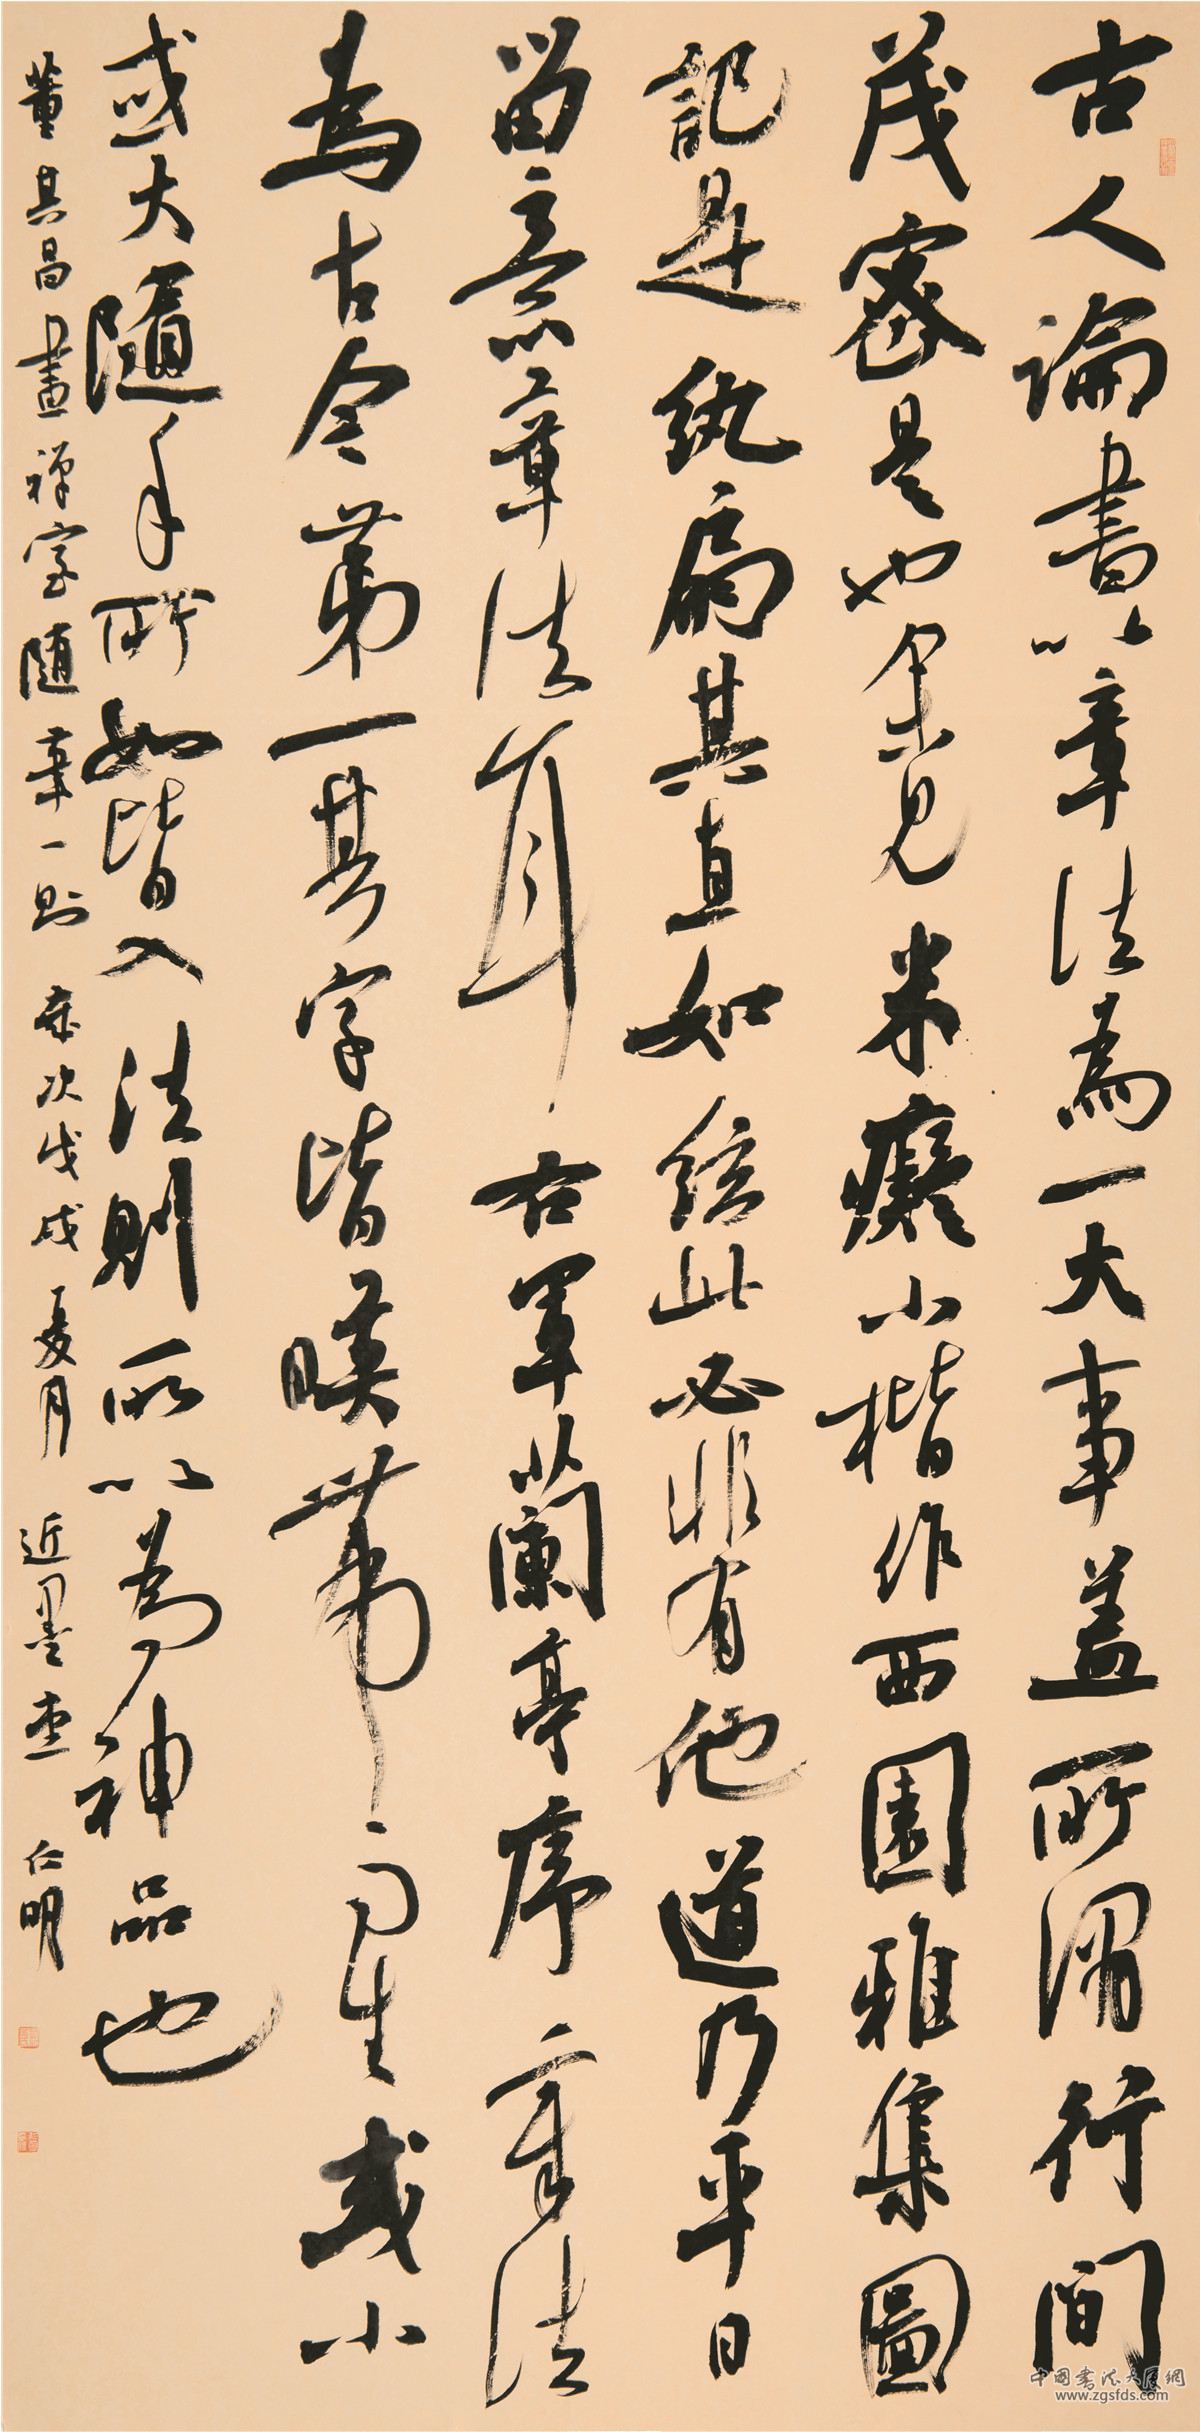 古人論書以章法為一大事盖所謂行間
茂密是也余見米癡小楷作西園雅集圖
記是紈扇其直如絃此必非有他道乃平日
留意章法耳右軍蘭亭序章法
為古今第一其字皆暎帶而生或小
或大隨手所如皆入法則所以為神品也
董其昌畫禅室随筆一則 歲次戊戌夏月 近墨堂 仁明
中国書法大展網
www.zgsfds.com